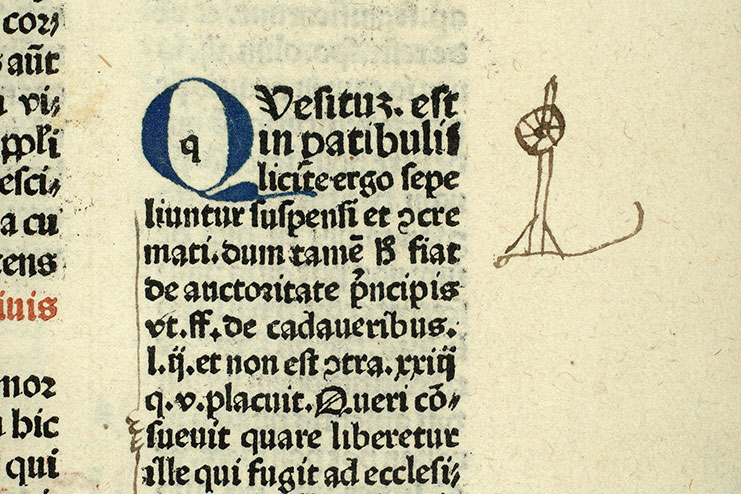 cor⸗
s aūt
a vi⸗
ppłi
esci⸗
a cu
tens
iuis
mor
u hic
qui
QVesituʒ. est
q
in patibulis
licite ergo sepe
liuntur suspensi et ɔcre
mati. dum tamē fiat
de auctoritate pͥncipis
vt. ff. de cadaueribus.
l. ij. et non est ɔtra. xxiij
q. v. placuit. Queri cō⸗
sueuit quare liberetur
ille qui fugit ad ecclesi⸗